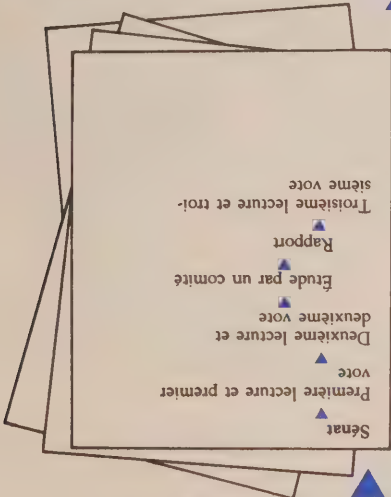 Sénat
Première lecture et premier
vote
Deuxième lecture et
deuxième vote
Étude par un comité
Rapport
Troisième lecture et troi-
sième vote